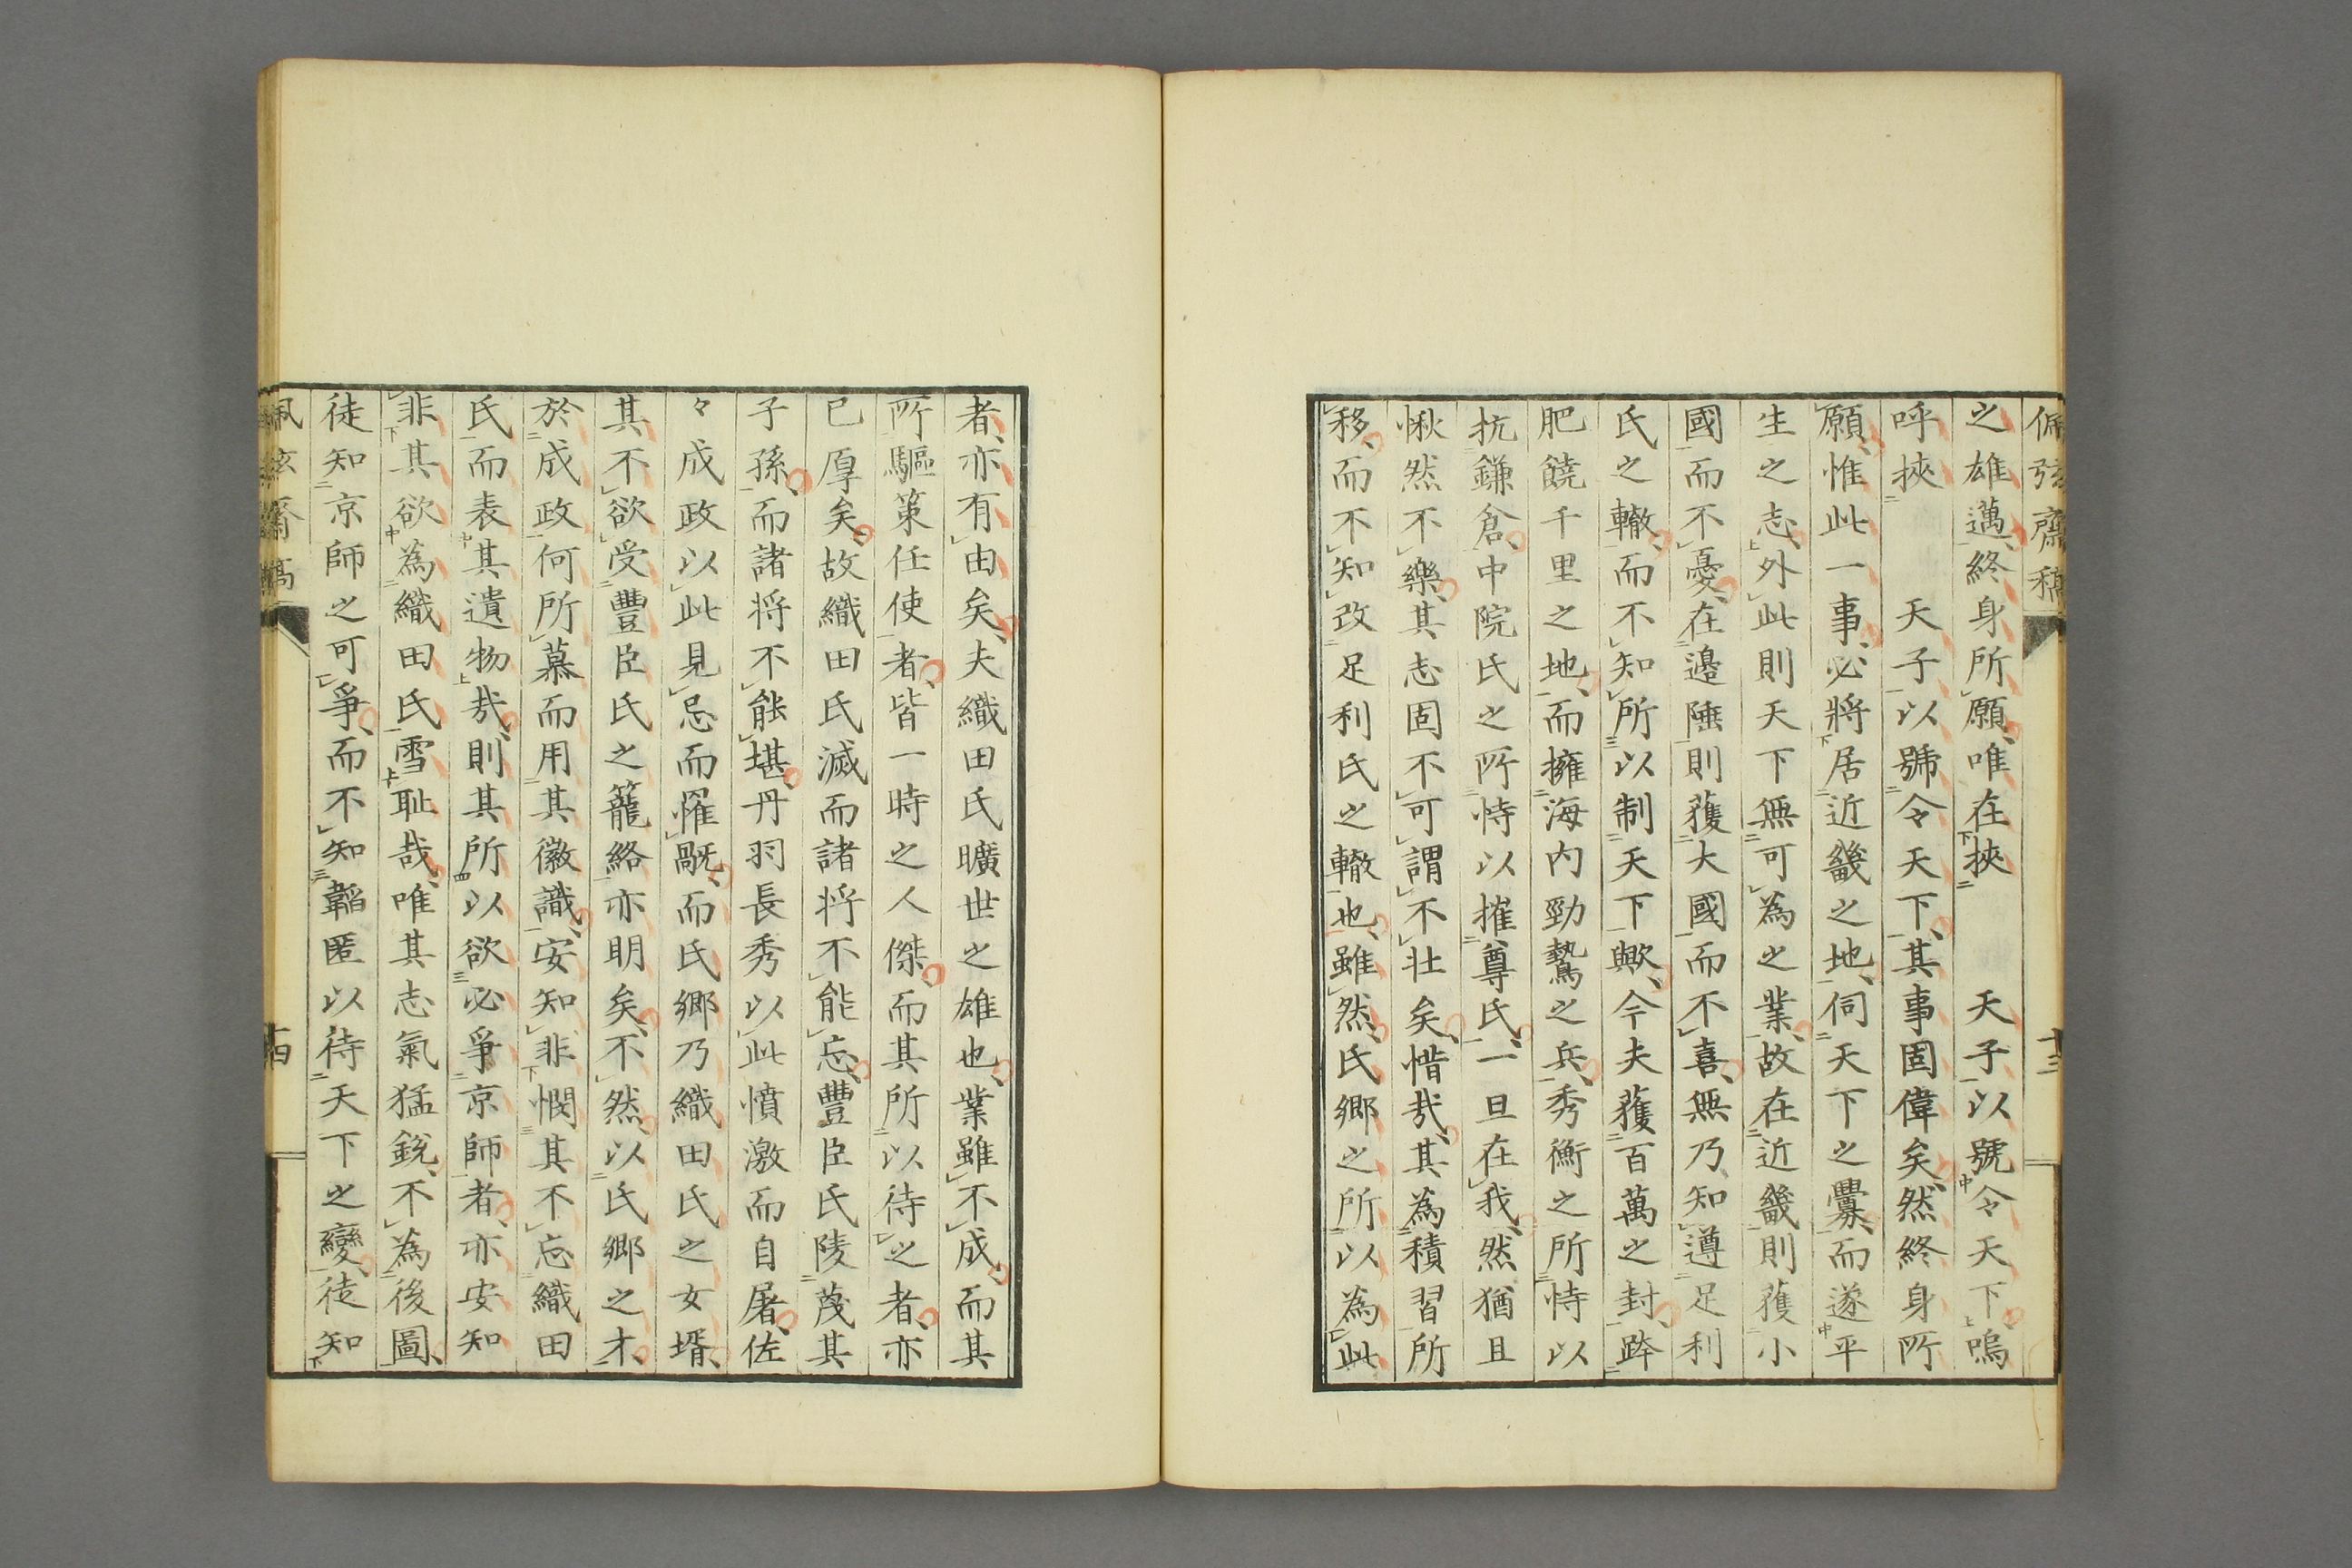 佩弦齋稿
十三
之雄邁終身所願唯在挾　天子以號令天下嗚
呼挾　天子以號令天下其事固偉矣然終身所
願惟此一事必將居近畿之地伺天下之釁而遂平
生之志外此則天下無可為之業故在近畿則獲小
國而不憂在邊陲則獲大國而不喜無乃知遵足利
氏之轍而不知所以制天下歟今夫獲百萬之封跨
肥饒千里之地而擁海內勁鷙之兵秀衡之所恃以
抗鎌倉中院氏之所恃以摧尊氏一旦在我然猶且
愀然不樂其志固不可謂不壯矣惜哉其為積習所
移而不知改足利氏之轍也雖然氏鄉之所以為此
者亦有由矣夫織田氏曠世之雄也業雖不成而其
所驅策任使者皆一時之人傑而其所以待之者亦
已厚矣故織田氏滅而諸將不能忘豐臣氏陵蔑其
子孫而諸将不能堪丹羽長秀以此憤激而自屠佐
々成政以此見忌而罹酷而氏鄉乃織田氏之女壻
其不欲受豐臣氏之籠絡亦明矣不然以氏鄉之才
於成政何所慕而用其徽識安知非憫其不忘織田
氏而表其遺物哉則其所以欲必爭京師者亦安知
非其欲為織田氏雪耻哉唯其志氣猛銳不為後圖
徒知京師之可爭而不知韜匿以待天下之變徒知
佩弦齋稿
十四